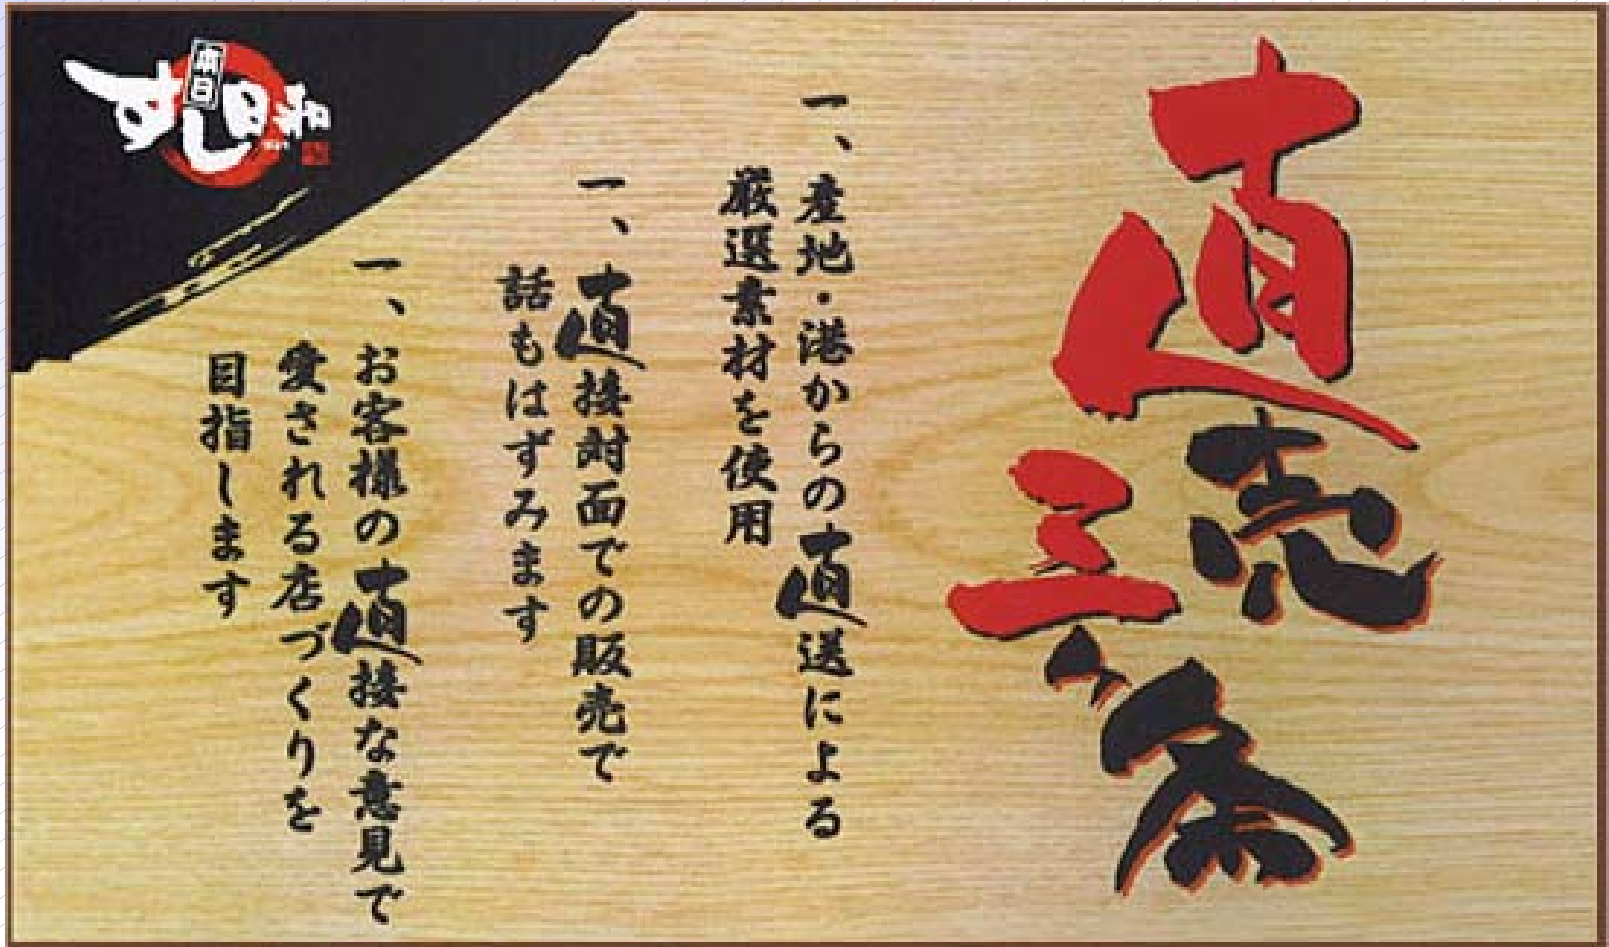 直売
三ヶ条
一、産地・港からの直送による
厳選素材を使用
一、直接対面での販売で
話もはずみます
一、お客様の直接な意見で
愛される店づくりを
目指します
本日
すし日和